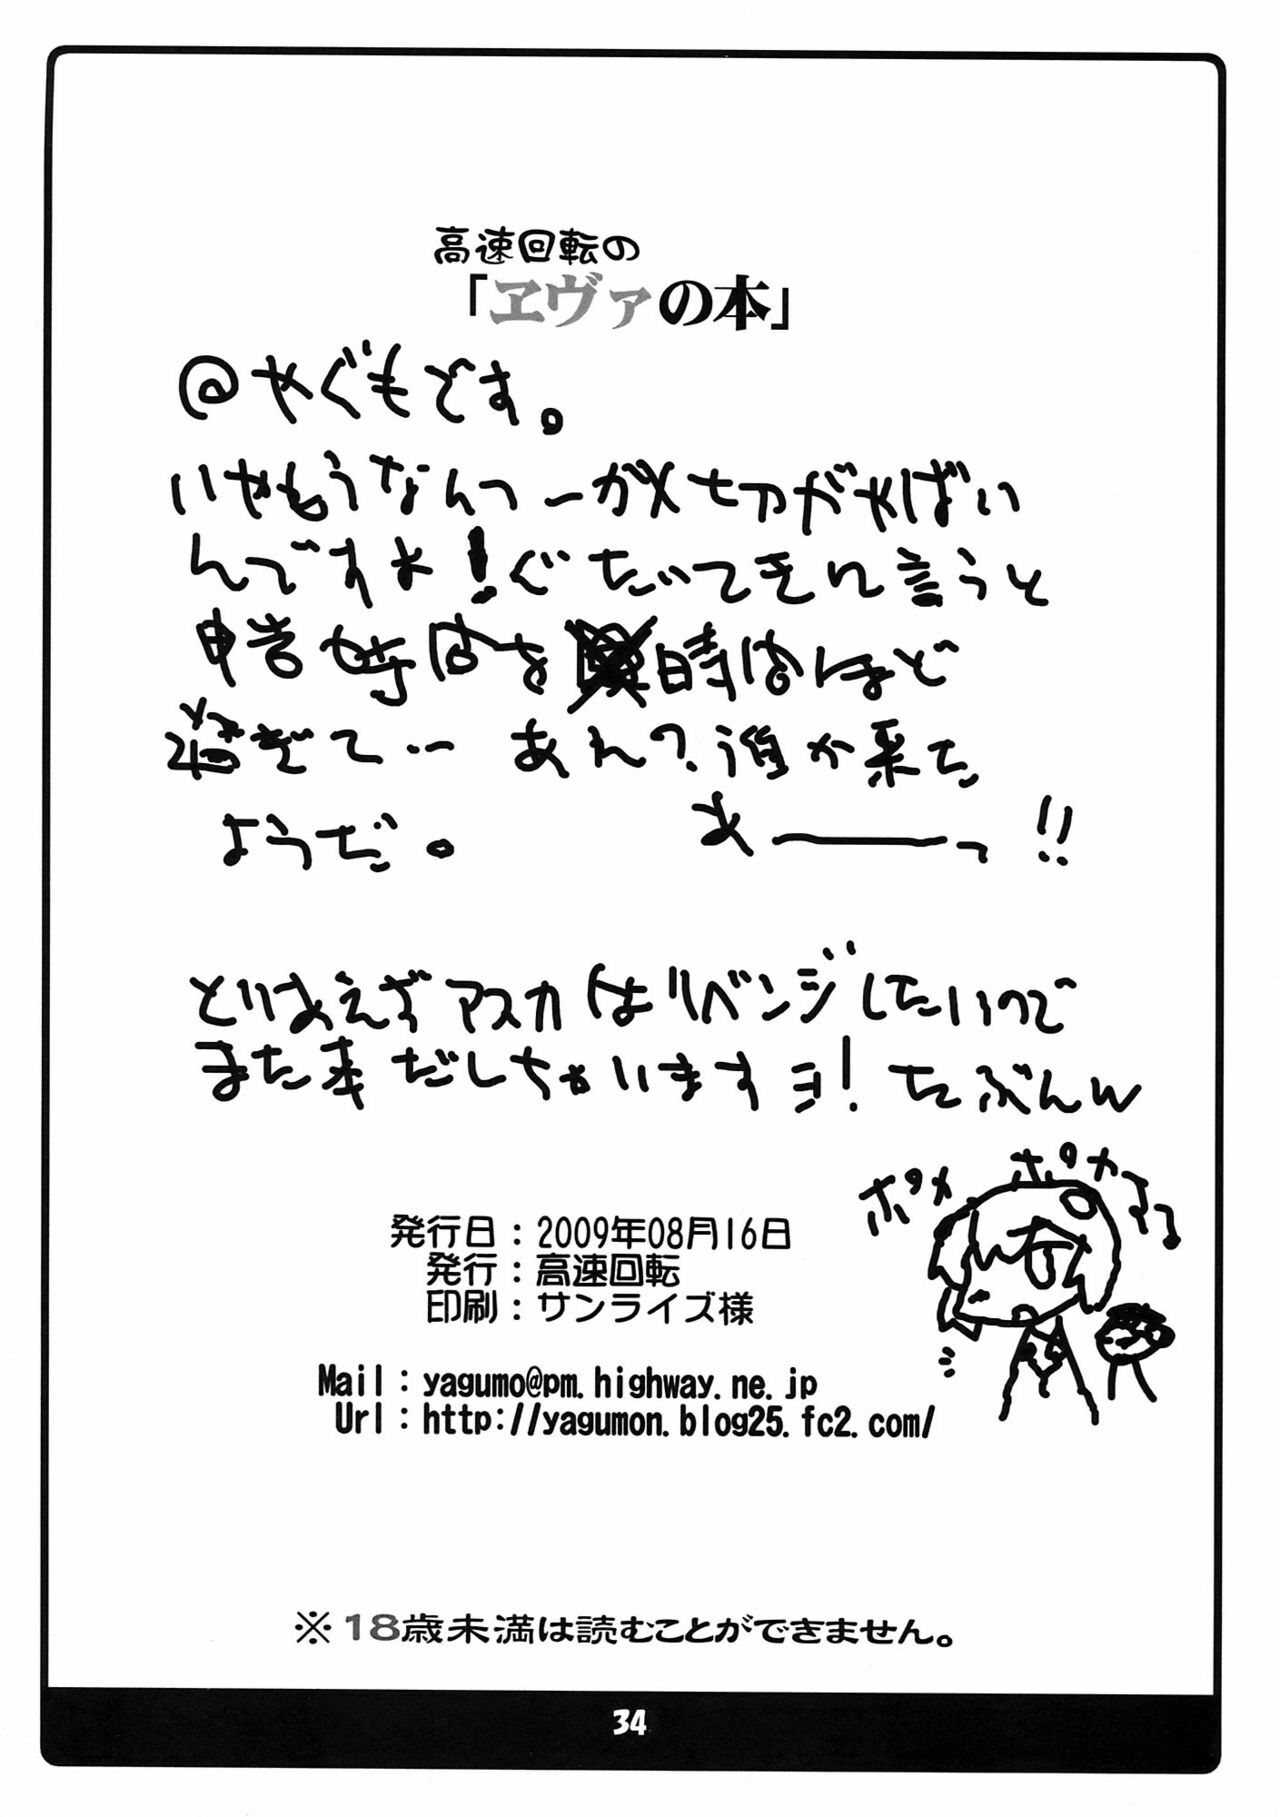 高速回転の
「ヱヴァの本」
@やぐもです。
いやもうなんつーか〆切がやばい
んですよ!ぐたいてきに言うと
申告時間を 時間ほど
過ぎて… あれ?誰か来た
ようだ。 あ――――っ!!
とりあえずアスカはリベンジしたいので
また本だしちゃいますヨ! たぶんw
ポカ
ポカする
発行日:2009年08月16日
発行:高速回転
印刷:サンライズ様
Mail:yagumo@pm.highway.ne.jp
Url:http://yagumon.blog25.fc2.com/
※18歳未満は読むことができません。
34